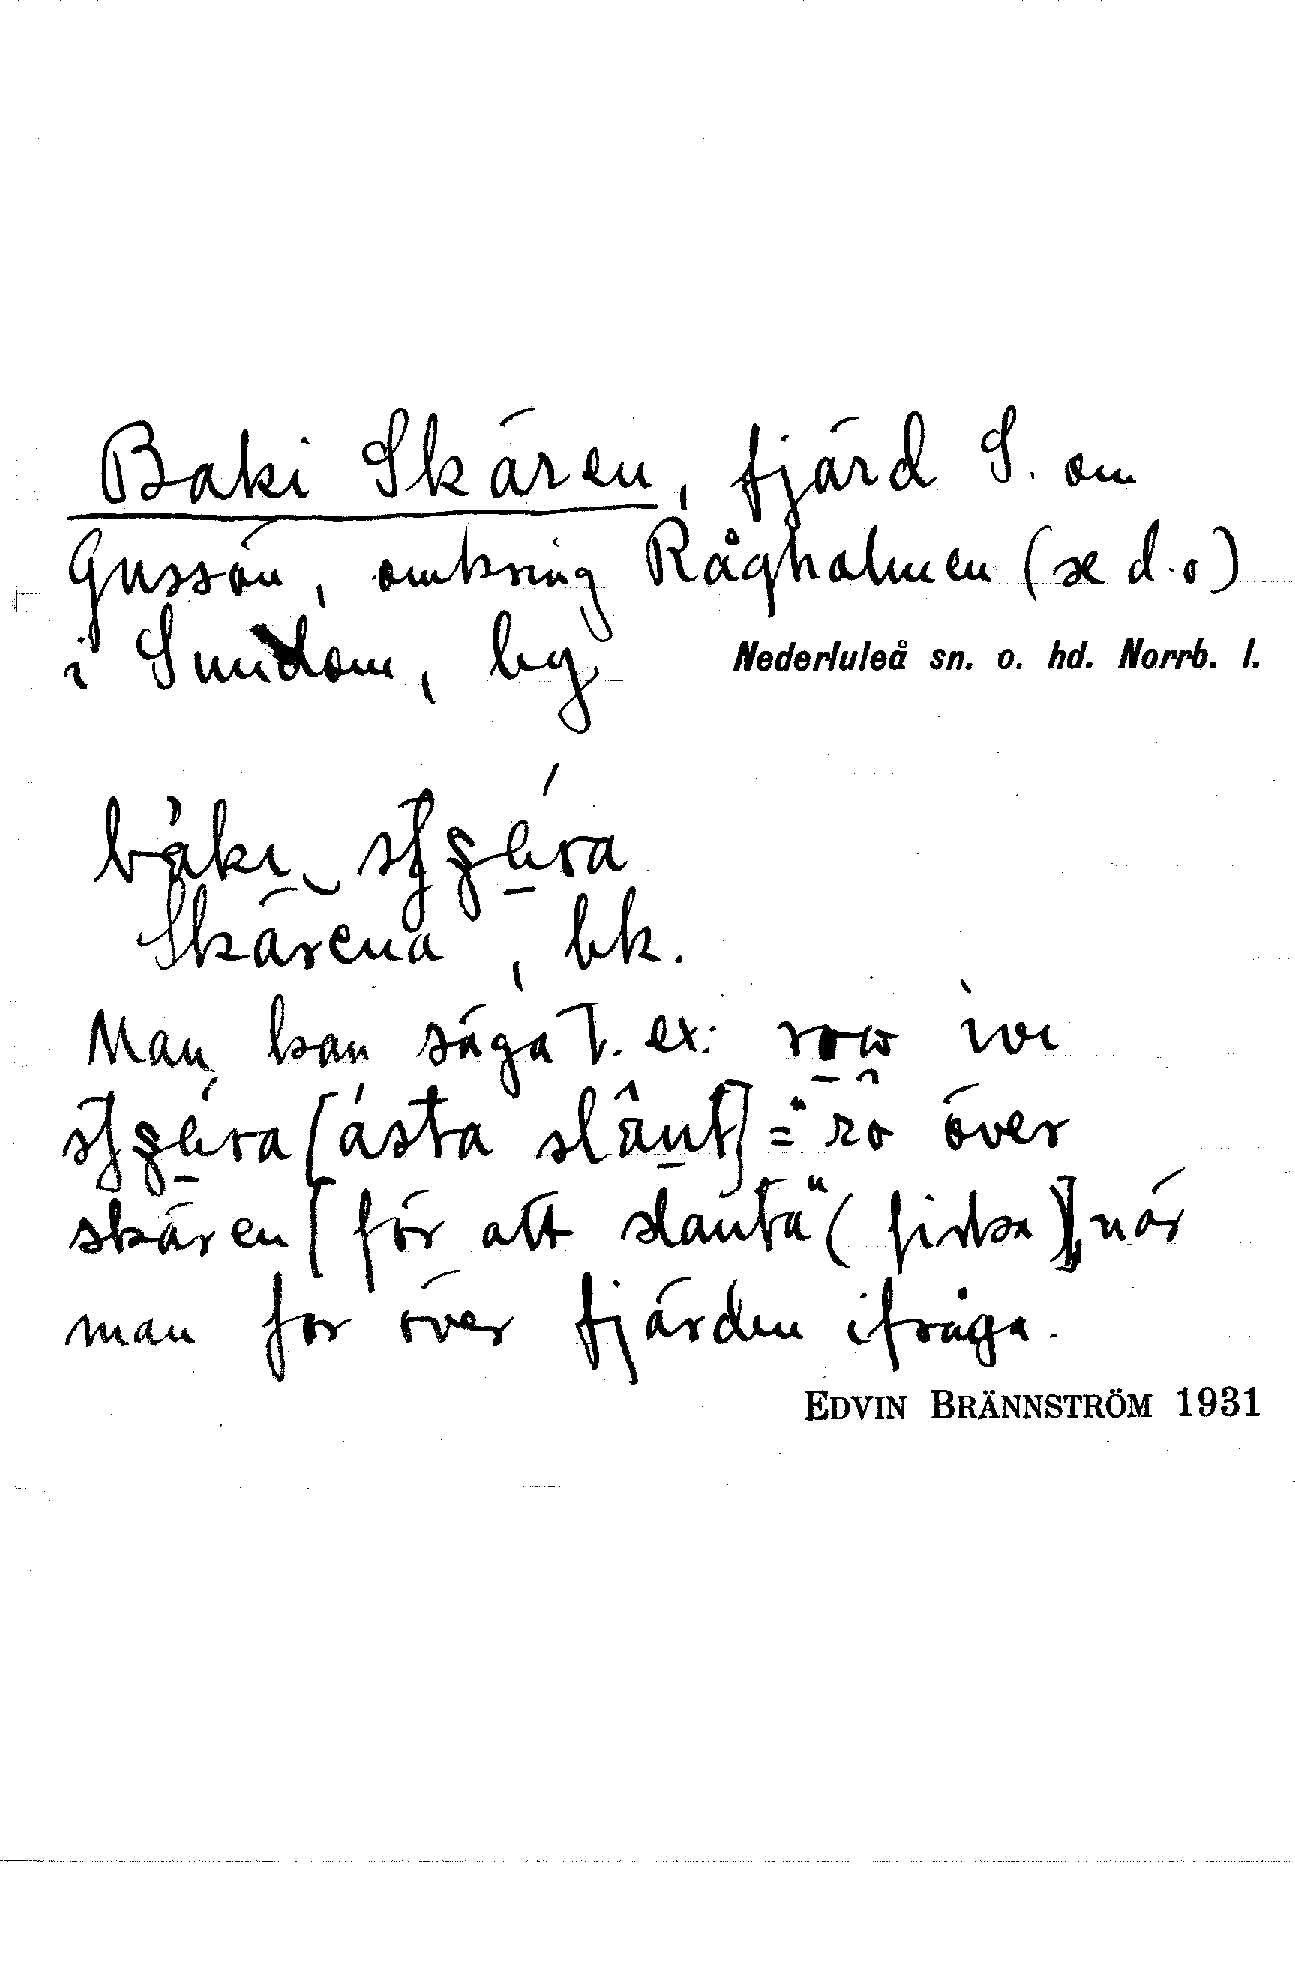 Baki Skären, fjärd S. om
Gussön, omkring Rågholmen (se d.o)
i Sundom, by
Nederluleå sn. o. hd. Norrb. l.
Skärena, bk.
Man kan säga t. ex:
= "ro över
skären [för att slanta" (fiska)], när
man for över fjärden ifråga.
EDVIN BRÄNNSTRÖM 1931